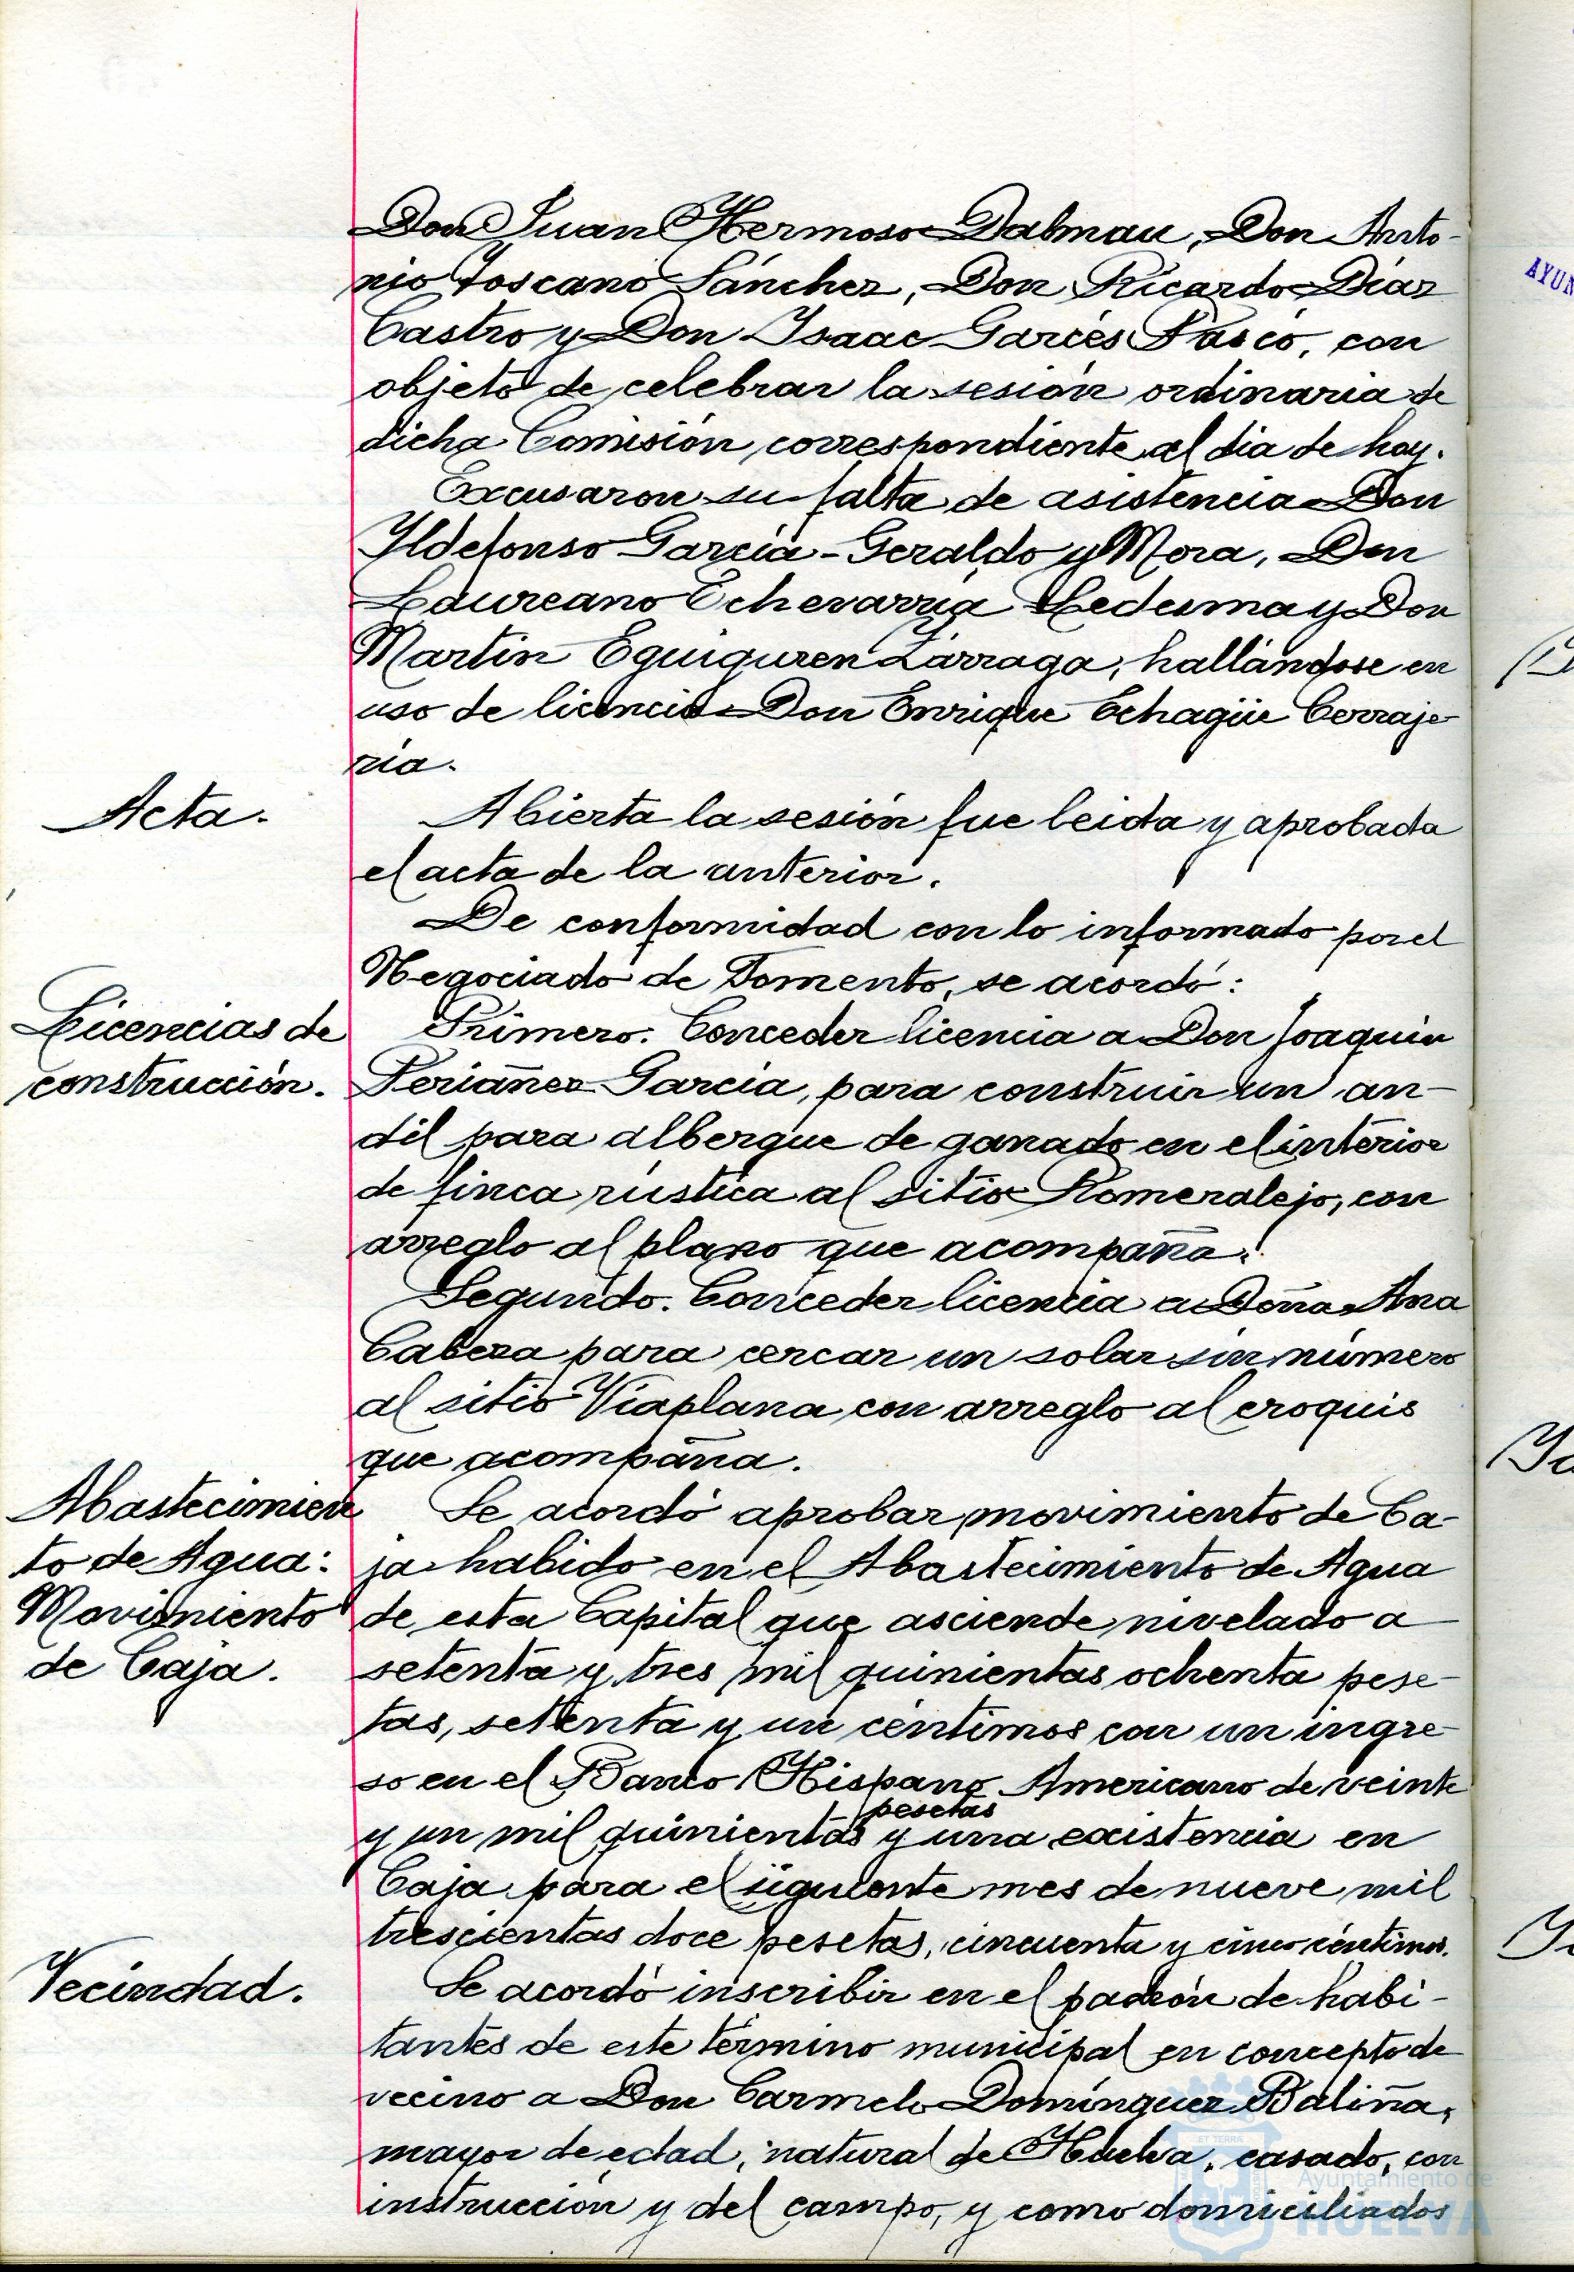 Don Juan Hermoso Dalmau, Don Anto-
nio Toscano Sánchez, Don Ricardo Díaz
Castro y Don Isaac Garcés Pascó, con
objeto de celebrar la sesión ordinaria de
dicha Comisión, correspondiente al dia de hoy.
Excusaron su falta de asistencia Don
Yldefonso García-Geraldo y Mora, Don
Laureano Echevarría Ledesma y Don
Martín Eguiguren Zárraga, hallándose en
uso de licencia Don Enrique Echagüe Cerraje-
ria.
Acta.
Abierta la sesión fue leida y aprobada
el acta de la anterior.
De conformidad con lo informado por el
Negociado de Fomento, se acordó:
Licencias de
construcción.
Primero. Conceder licencia a Don Joaquín
Periañez García, para construir un an-
dil para albergue de ganado en el interior
de finca rústica al sitio Romeralejo, con
arreglo al plano que acompaña.
Segundo. Conceder licencia a Doña Ana
Cabeza para cercar un solar sin número
al sitio Viaplana con arreglo al croquis
que acompaña.
Abastecimien
to de Agua:
Movimiento
de Caja.
Se acordó aprobar movimiento de Ca-
ja habido en el Abastecimiento de Agua
de esta Capital que asciende nivelado a
setenta y tres mil quinientas ochenta pese-
tas, setenta y un céntimos con un ingre-
so en el Banco Hispano Americano de veinte
pesetas
y un mil quinientas y una existencia en
Caja para el siguiente mes de nueve mil
trescientas doce pesetas, cincuenta y cinco céntimos.
Vecindad.
Se acordó inscribir en el padrón de habi-
tantes de este término municipal en concepto de
vecino a Don Carmelo Domínguez Baliña,
mayor de edad, natural de Huelva, casado, con
instrucción y del campo, y como domiciliados
Ayuntamiento de
HUELVA